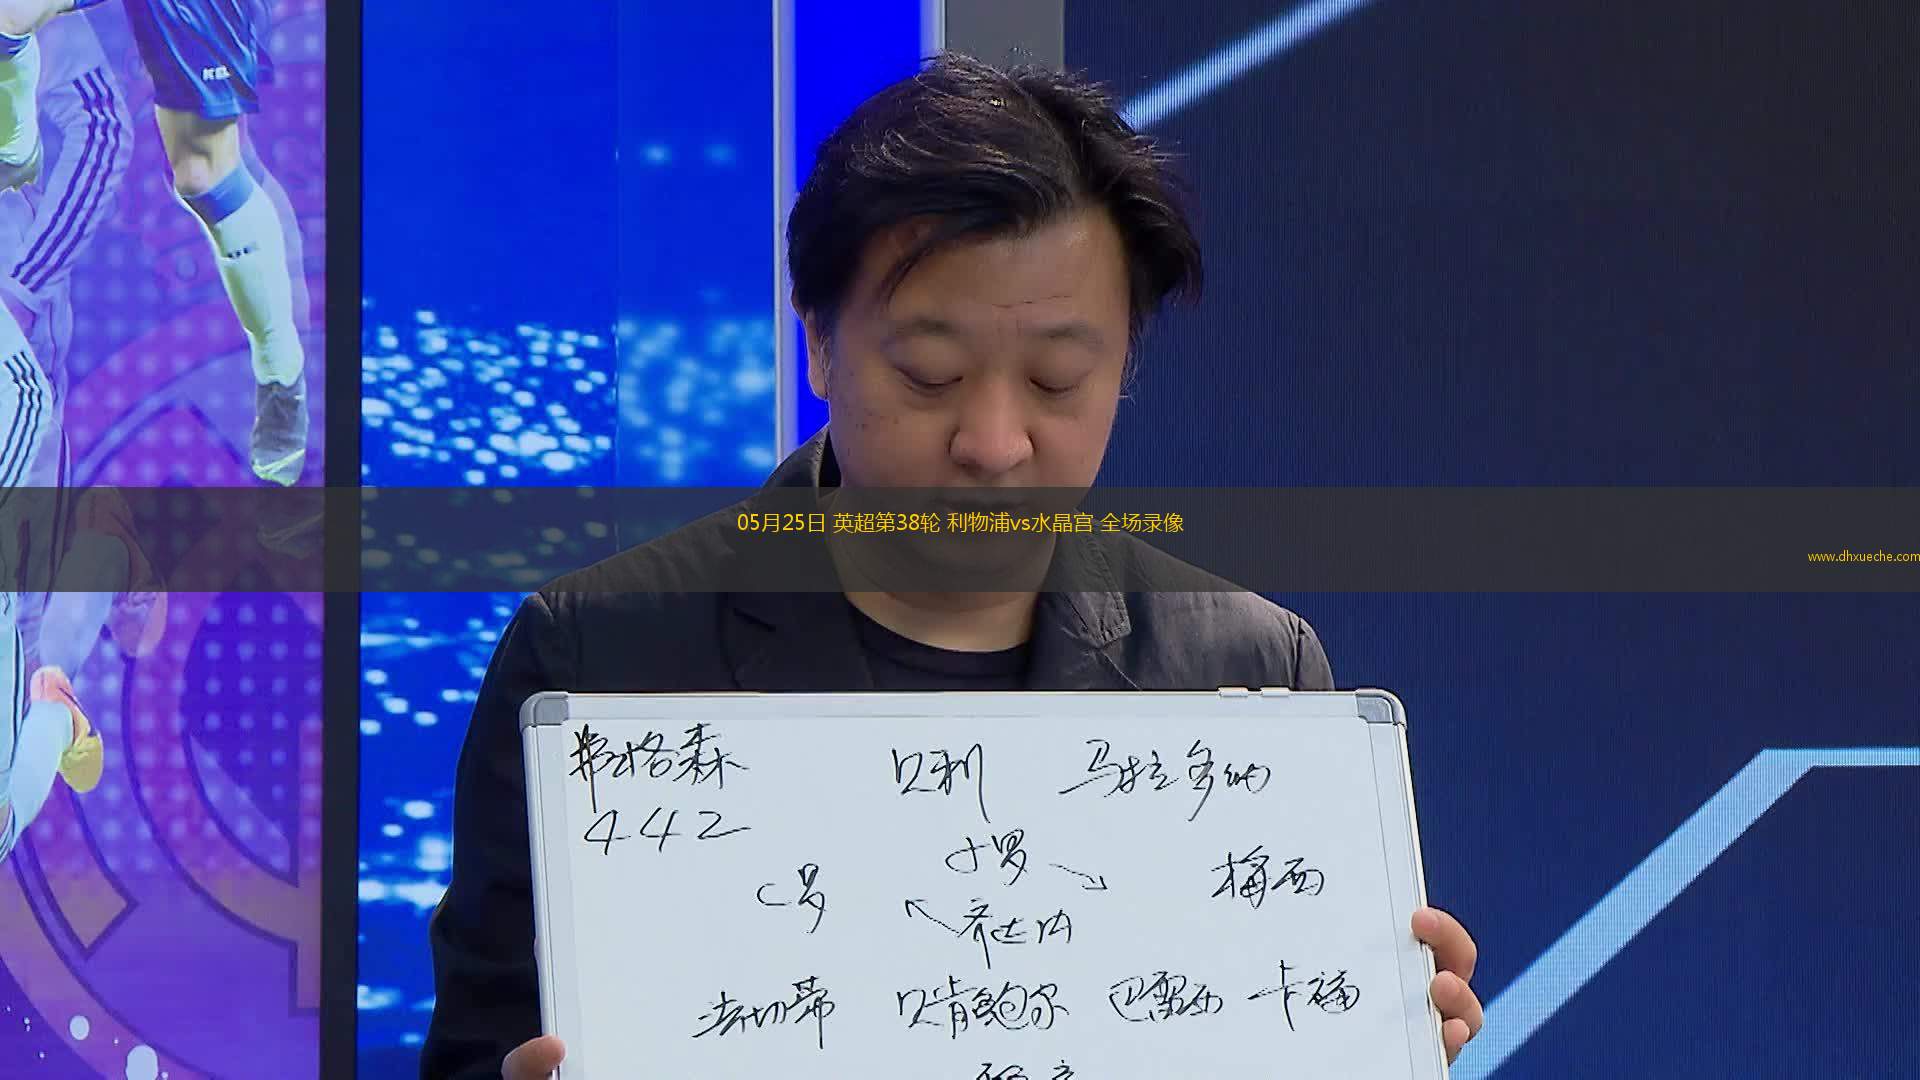 05月25日 英超第38轮 利物浦vs水晶宫 全场录像
www.dhxueche.com
弗格森 贝利 马拉多纳
442
小罗
C罗 梅西
齐达内
法切蒂 贝肯鲍尔 巴雷西 卡福